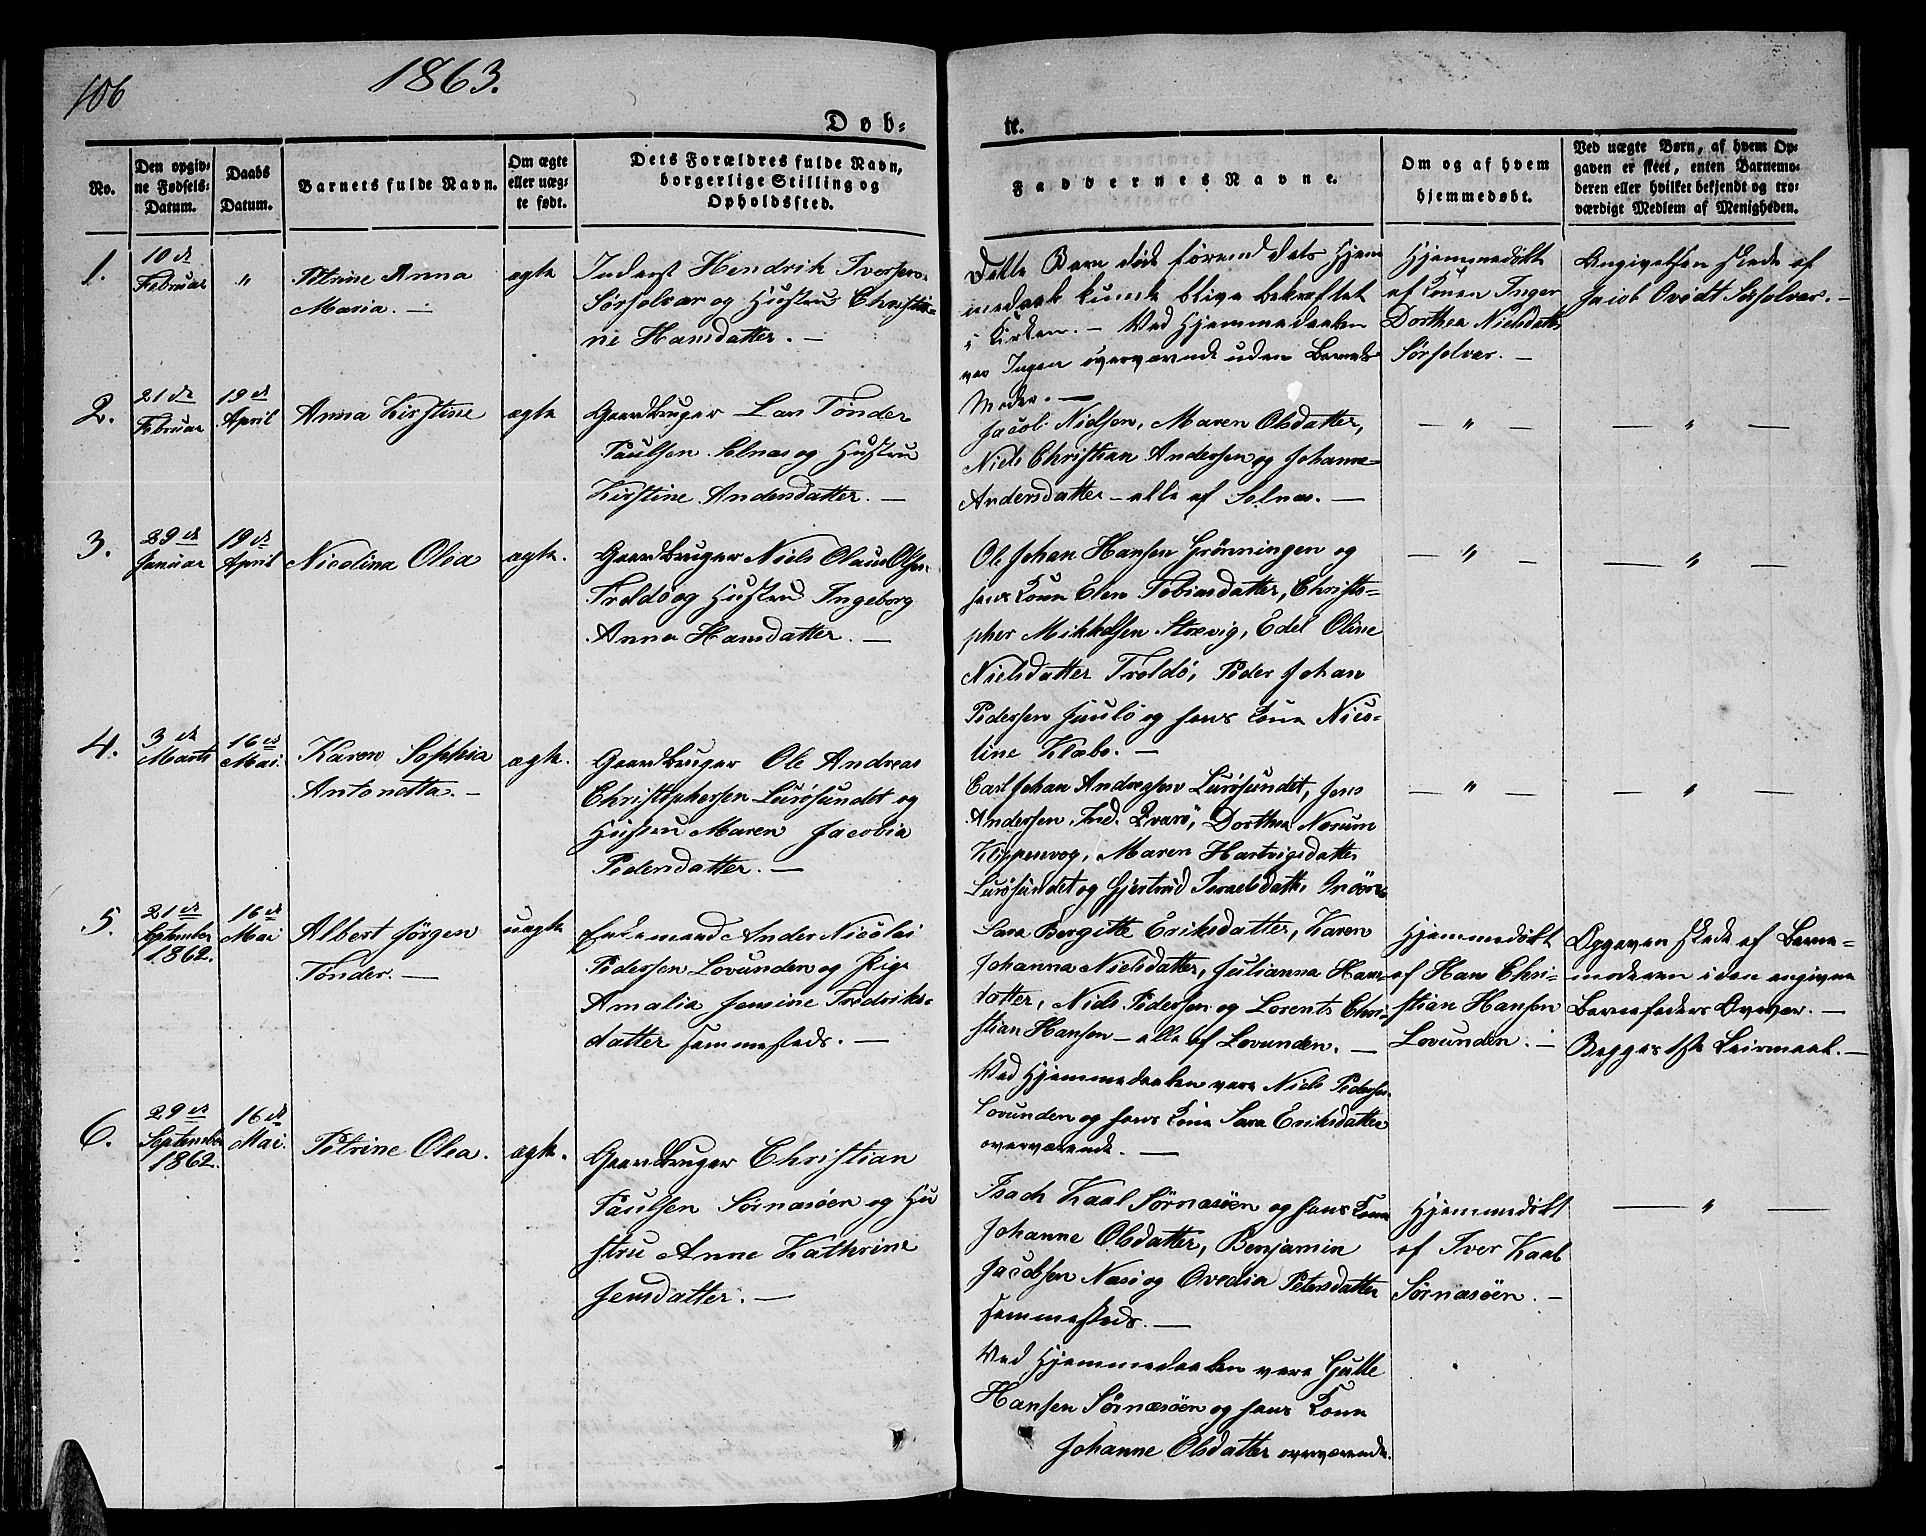 106
1863.
Døb-
te.
No.
Den opgiv-
ne Fødsels-
Datum.
Daabs
Datum.
Barnets fulde Navn.
Om ægte
eller uæg-
te født.
Dets Forældres fulde Navn,
borgerlige Stilling og
Opholdssted.
Faddernes Navne.
Om og af hvem
hjemmedøbt.
Ved uægte Børn, af hvem Op-
gaven er skeet, enten Barnemo-
deren eller hvilket bekjendt og tro-
værdigt Medlem af Menigheden.
1.
10de
Februar
"
Petrine Anna
Maria. —
ægte
Inderst Hendrik Iversen
Sørsolvær og Hustru Christia-
ne Hansdatter. —
Dette Barn døde førend dets Hjem
medaab kunde blive bekræftet
i Kirken. — Ved Hjemmedaaben
var Ingen overværende uden Barnets
Moder. —
Hjemmedøbt
af Konen Inger
Dorthea Nielsdatter
Sørsolvær. —
Angivelsen skede af
Jacob Ovedt Sørsolvær. —
2.
21de
Februar
19de
April
Anna Kirstine
ægte
Gaardbruger Lars Tønder
Paulsen Selnæs og Hustru
Kirstine Andersdatter. —
Jacob Nielsen, Maren Olsdatter,
Niels Christian Andersen og Johanna
Andersdatter — alle af Selnæs. —
— " —
— " —
3.
29de
Januar
19de
April
Nicolina Olea
ægte.
Gaardbruger Niels Olaus Olsen
Troldø og Hustru Ingeborg
Anna Hansdatter. —
Ole Johan Hansen Grønningen og
hans Kone Elen Tobiasdatter, Christo-
pher Mikkelsen Storvig, Edel Oline
Nielsdatter Troldø, Peder Johan
Pedersen og hans Kone Nico-
line Klæbo. —
— " —
— " —
4.
3de
Marts
16de
Mai.
Karen Sophia
Antonetta. —
ægte.
Gaardbruger Ole Andreas
Christophersen Lurøsundet og
Hustru Maren Jacobia
Pedersdatter. —
Carl Johan Andreassen Lurøsundet, Jens
Andersen Ind. Kvarø, Dorthea Norum
Maren Hartvigsdatter
Lurøsundet og Gjertrud Israelsdatter
— " —
— " —
5.
21de
September
1862.
16de
Mai
Albert Jørgen
Tønder. —
uægte
Enkemand Anders Nicolai
Pedersen Lovunden og Pige
Amalia Jensine Fredriks-
datter sammesteds. —
Sara Bergitte Eriksdatter, Karen
Johanna Nielsdatter, Julianna Hans-
datter, Niels Pedersen og Lorents Chri-
stian Hansen — alle af Lovunden. —
Ved Hjemmedaaben vare Niels Pedersen
Lovunden og hans Kone Sara Eriksdatter
overværende. —
Hjemmedøbt
af Hans Chri-
stian Hansen
Lovunden. —
Opgaven skede af Barne-
moderen i den angivne
Barnefaders Overvær. —
Begges 1ste Leiermaal. —
6.
29de
September
1862.
16de
Mai.
Petrine Olea.
ægte.
Gaardbruger Christian
Paulsen Sørnæsøen og Hu
stru Anne Kathrine
Jensdatter. —
Isach Kaal Sørnæsøen og hans Kone
Johanne Olsdatter, Benjamin
Jacobsen Næsø og Ovedia Petersdatter
sammesteds. —
Ved Hjemmedaaben vare
Hansen Sørnæsøen og hans Kone
Johanne Olsdatter overværende.
Hjemmedøbt
af Iver Kaal
Sørnæsøen. —
— " —